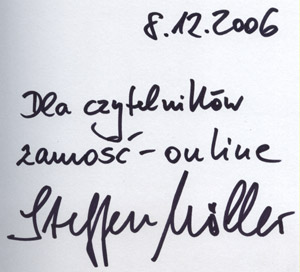 8.12.2006
Dla czytelników
zamość-online
Steffen Möller